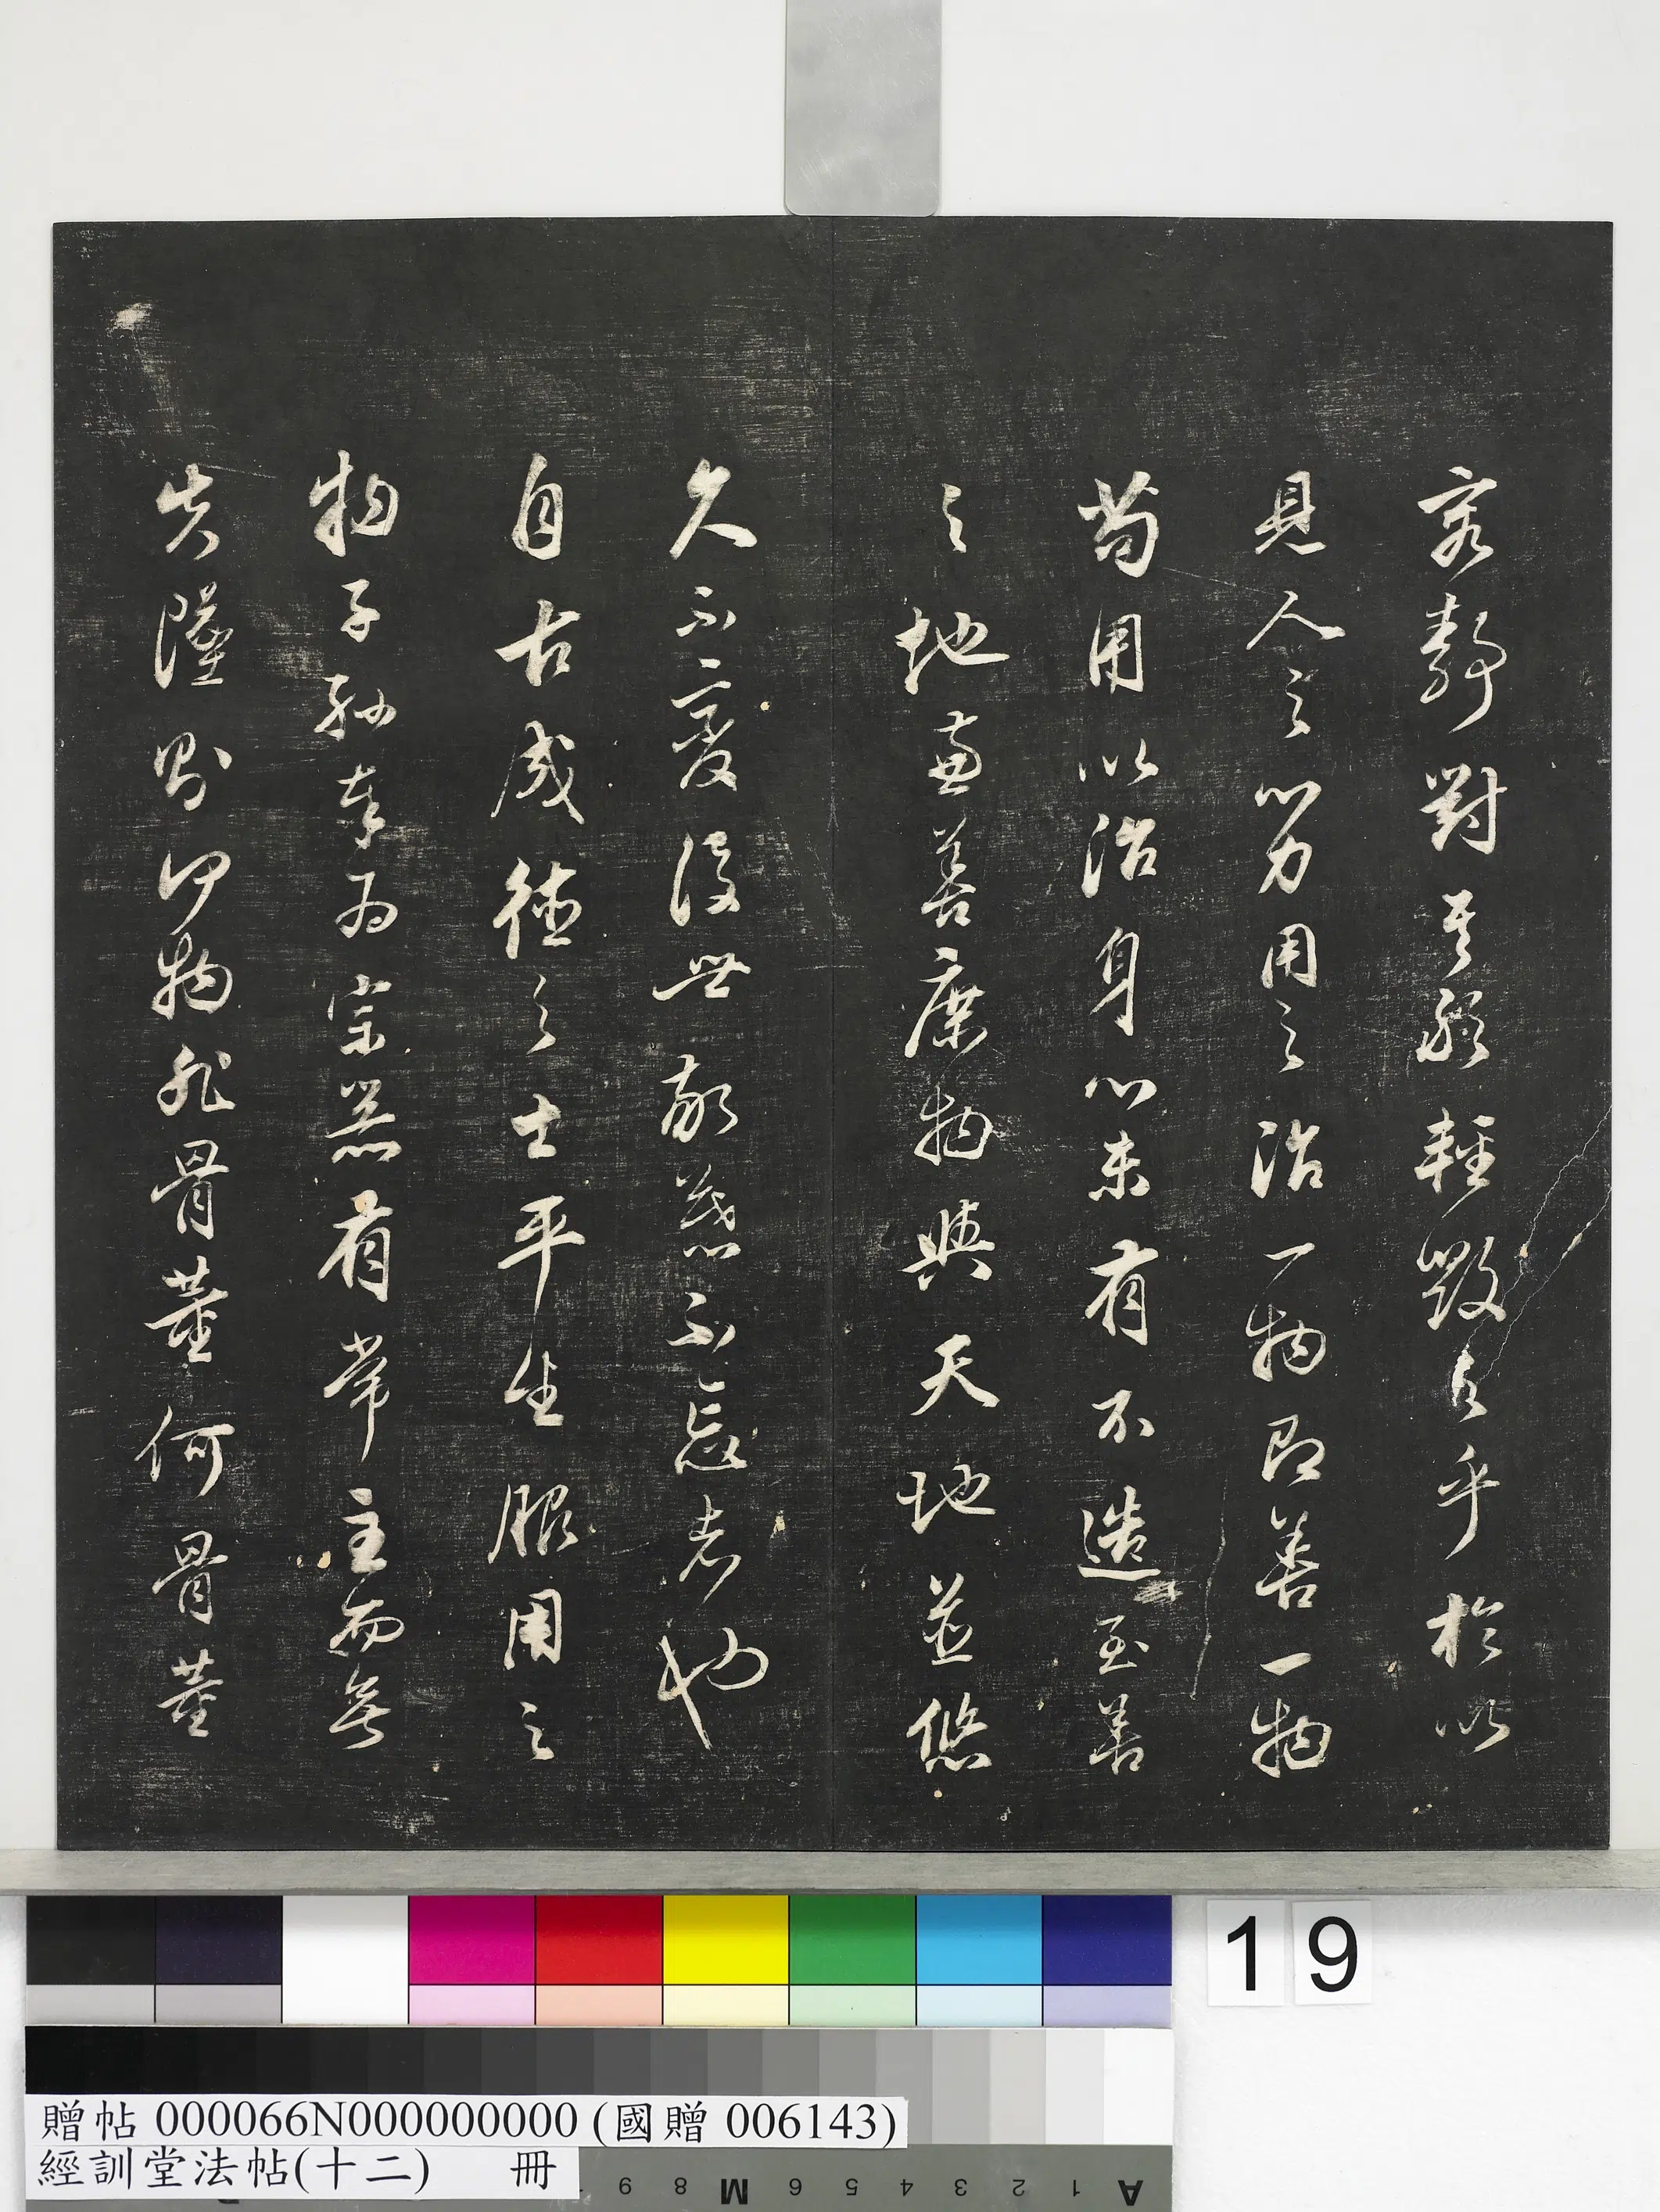 客靜對其能輕毀之乎於以
見人之心力用之治一物即善一物
苟用以治身心未有不造至善
之地兼善庶物與天地並悠
久不變後世敬慕不忘者也
自古成德之士平生服用之
物子孫奉為宗器有常主而無
失墜則似物非骨董何骨董
19
贈帖 000066N000000000 (國贈 006143)
經訓堂法帖(十二) 冊
A 1 2 3 4 5 6 M 8 9